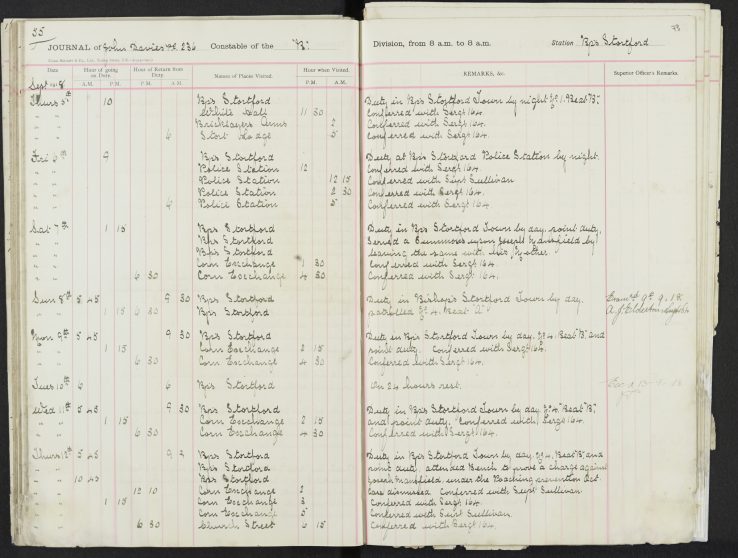 35
73
JOURNAL of John Davies P.C. 236 Constable of the "B". Division, from 8 a.m. to 8 a.m. Station Bp's Stortford
Date Hour of going on Duty. Hour of Return from Duty. Names of Places Visited. Hour when Visited. REMARKS, &c. Superior Officer's Remarks.
A.M. P.M. P.M. A.M. P.M. A.M.
Sept 1918
Thurs 5th 10 Bp's Stortford Duty in Bp's Stortford Town by night No. 1. Beat "B".
White 11 30 Conferred with Sergt 164.
Bricklayers Arms 2 Conferred with Sergt 164.
6 Stort Lodge 5 Conferred with Sergt 164.
Fri 6th 9 Bp's Stortford Duty at Bp's Stortford Police Station by night.
Police Station 12 Conferred with Sergt 164.
Police Station 12 15 Conferred with Supt Sullivan
Police Station 2 30 Conferred with Sergt 164.
6 Police Station 5 Conferred with Sergt 164.
Sat 7th 1 15 Bp's Stortford Duty in Bp's Stortford Town by day, point duty,
Bp's Stortford Served a Summons upon Joseph Mansfield by
Bp's Stortford leaving the same with his Mother
Corn Exchange 1 30 Conferred with Sergt 164.
6 30 Corn Exchange 4 30 Conferred with Sergt 164.
Sun 8th 5 45 9 30 Bp's Stortford Duty in Bishop's Stortford Town by day.
1 15 6 30 Bp's Stortford patrolled No. 4. Beat "A". Exam'd 9th 9. 18.
Mon 9th 5 45 9 30 Bp's Stortford Duty in Bp's Stortford Town by day. No. 4. Beat "B", and
1 15 Corn Exchange 2 15 point duty. Conferred with Sergt 164.
6 30 Corn Exchange 4 30 Conferred with Sergt 164.
Tues 10th 6 6 Bp's Stortford On 24 hours rest.
Wed 11th 5 45 9 30 Bp's Stortford Duty in Bp's Stortford Town by day. No. 4. "Beat "B",
1 15 Corn Exchange 2 15 and point duty. Conferred with Sergt 164.
6 30 Corn Exchange 4 30 Conferred with Sergt 164.
Thurs 12th 5 45 9 Bp's Stortford Duty in Bp's Stortford Town by day. No. 4. Beat "B", and
Bp's Stortford point duty. attended Bench to prove a charge against
10 45 Bp's Stortford Joseph Mansfield, under the Poaching prevention Act.
12 10 Corn Exchange 2 Case dismissed Conferred with Supt Sullivan.
1 15 Corn Exchange 3 Conferred with Sergt 164.
Corn Exchange 5 Conferred with Supt Sullivan.
6 30 Church Street 6 15 Conferred with Sergt 164.